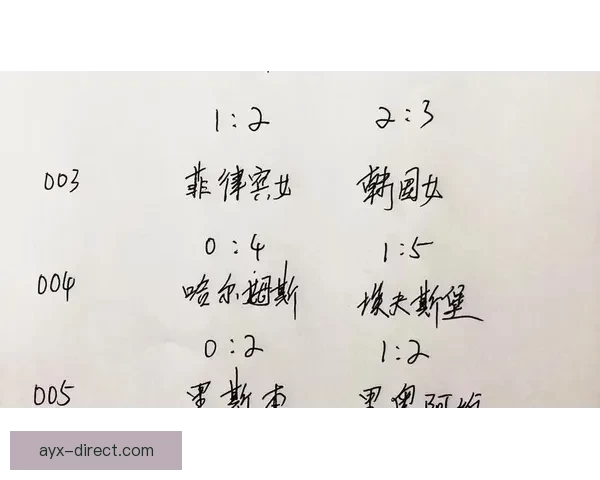 1:2 2:3
003 菲律宾女 韩国女
0:4 1:5
004 哈尔姆斯 埃夫斯堡
0:2 1:2
005 里斯本 里奥阿维
ayx-direct.com